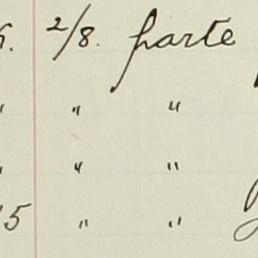 2/8. parte
" " "
" " "
15 " "